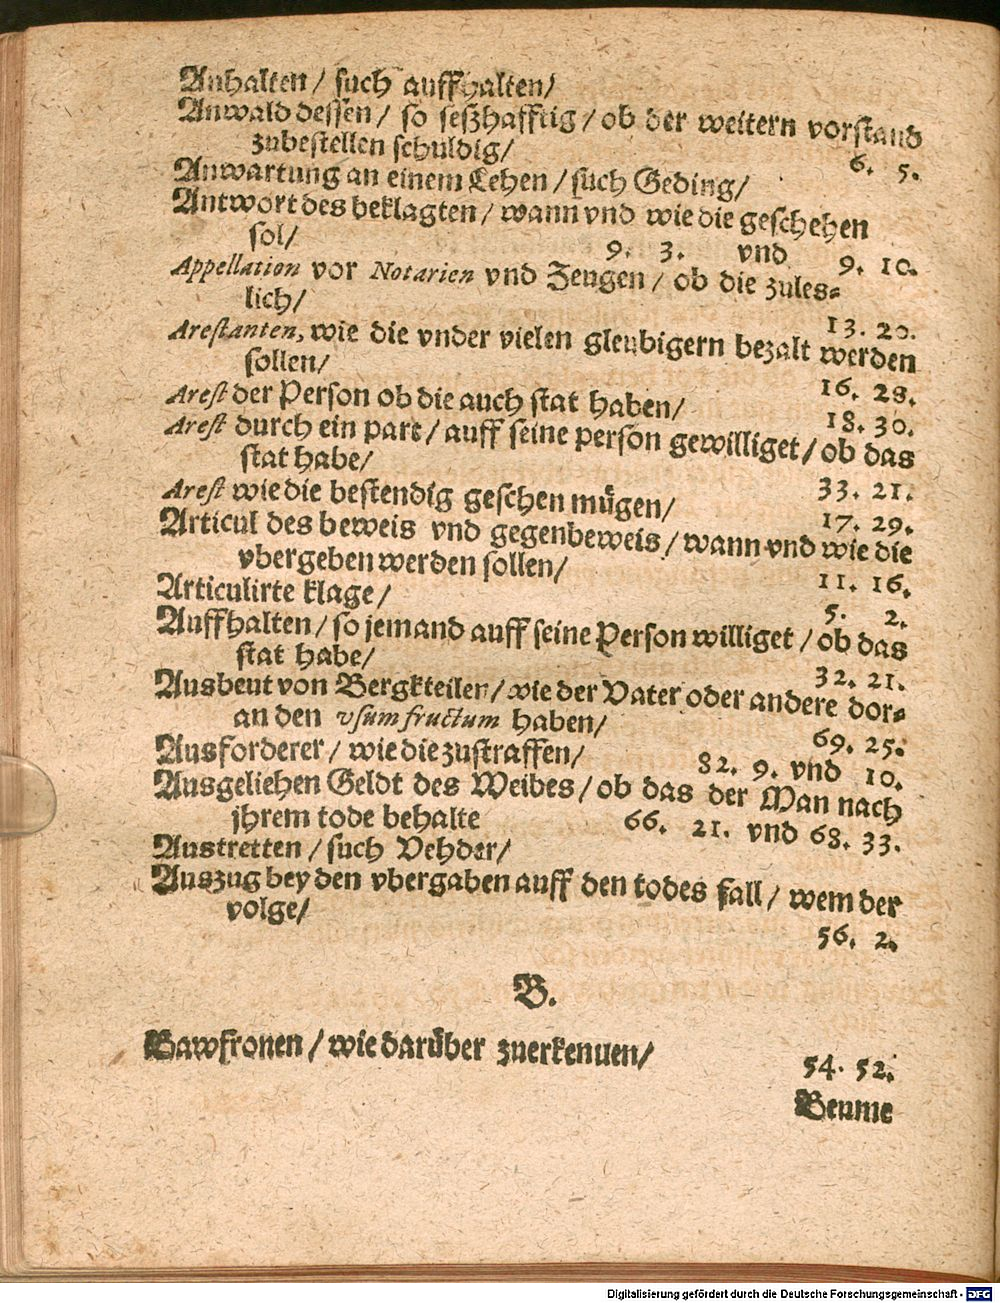 Anhalten / such auffhalten /
Anwald dessen / so seßhafftig / ob der weitern vorstand
zubestellen schuldig / 6. 5.
Anwartung an einem Lehen / such Geding /
Antwort des beklagten / wann vnd wie die geschehen
sol / 9. 3. vnd 9. 10.
Appellation vor Notarien vnd Zeugen / ob die zules=
lich / 13. 20.
Arestanten, wie die vnder vielen gleubigern bezalt werden
sollen / 16. 28.
Arest der Person ob die auch stat haben / 18. 30.
Arest durch ein part / auff seine person gewilliget / ob das
stat habe / 33. 21.
Arest wie die bestendig geschen mügen / 17. 29.
Articul des beweis vnd gegenbeweis / wann vnd wie die
vbergeben werden sollen / 11. 16.
Articulirte klage / 5. 2.
Auffhalten / so jemand auff seine Person williget / ob das
stat habe / 32. 21.
Ausbeut von Bergkteilen / wie der Vater oder andere dor=
an den vsum fructum haben / 69. 25.
Ausforderer / wie die zustraffen / 82. 9. vnd 10.
Ausgeliehen Geldt des Weibes / ob das der Man nach
jhrem tode behalte 66. 21. vnd 68. 33.
Austretten / such Vehder /
Auszug bey den vbergaben auff den todes fall / wem der
volge / 56. 2.
B.
Bawfronen / wie darüber zuerkennen / 54. 52.
Beume
Digitalisierung gefördert durch die Deutsche Forschungsgemeinschaft - DFG